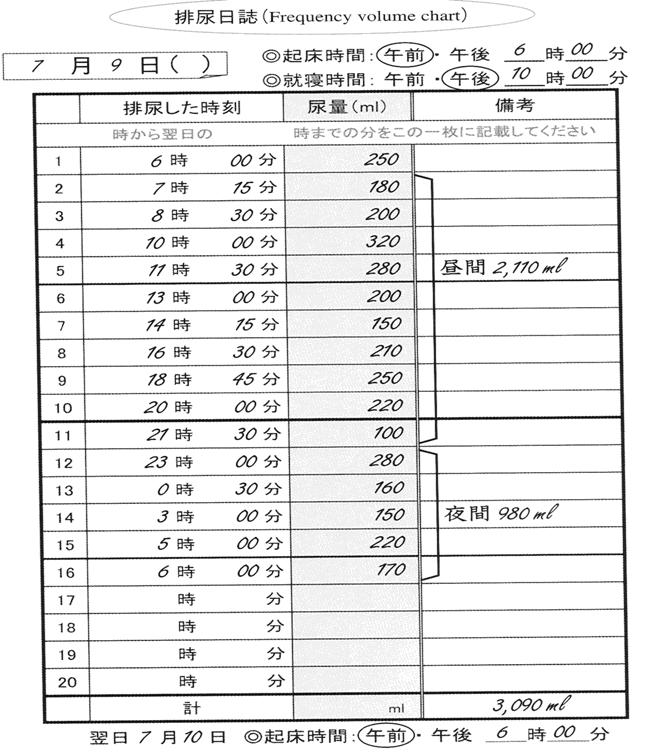 排尿日誌(Frequency volume chart)
7月9日( )
◎起床時間:午前・午後 6時00分
◎就寝時間:午前・午後 10時00分
排尿した時刻 尿量(ml) 備考
時から翌日の 時までの分をこの一枚に記載してください
1 6時 00分 250
2 7時 15分 180
3 8時 30分 200
4 10時 00分 320
5 11時 30分 280 昼間 2,110ml
6 13時 00分 200
7 14時 15分 150
8 16時 30分 210
9 18時 45分 250
10 20時 00分 220
11 21時 30分 100
12 23時 00分 280
13 0時 30分 160
14 3時 00分 150 夜間 980ml
15 5時 00分 220
16 6時 00分 170
17 時 分
18 時 分
19 時 分
20 時 分
計 ml 3,090ml
翌日7月10日 ◎起床時間:午前・午後 6時00分